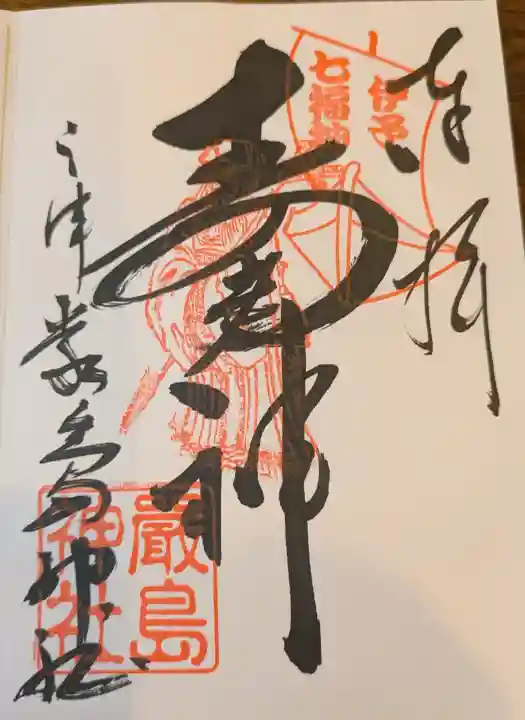 奉拝
伊予
七福神
寿老神
三津厳島神社
厳島
神社